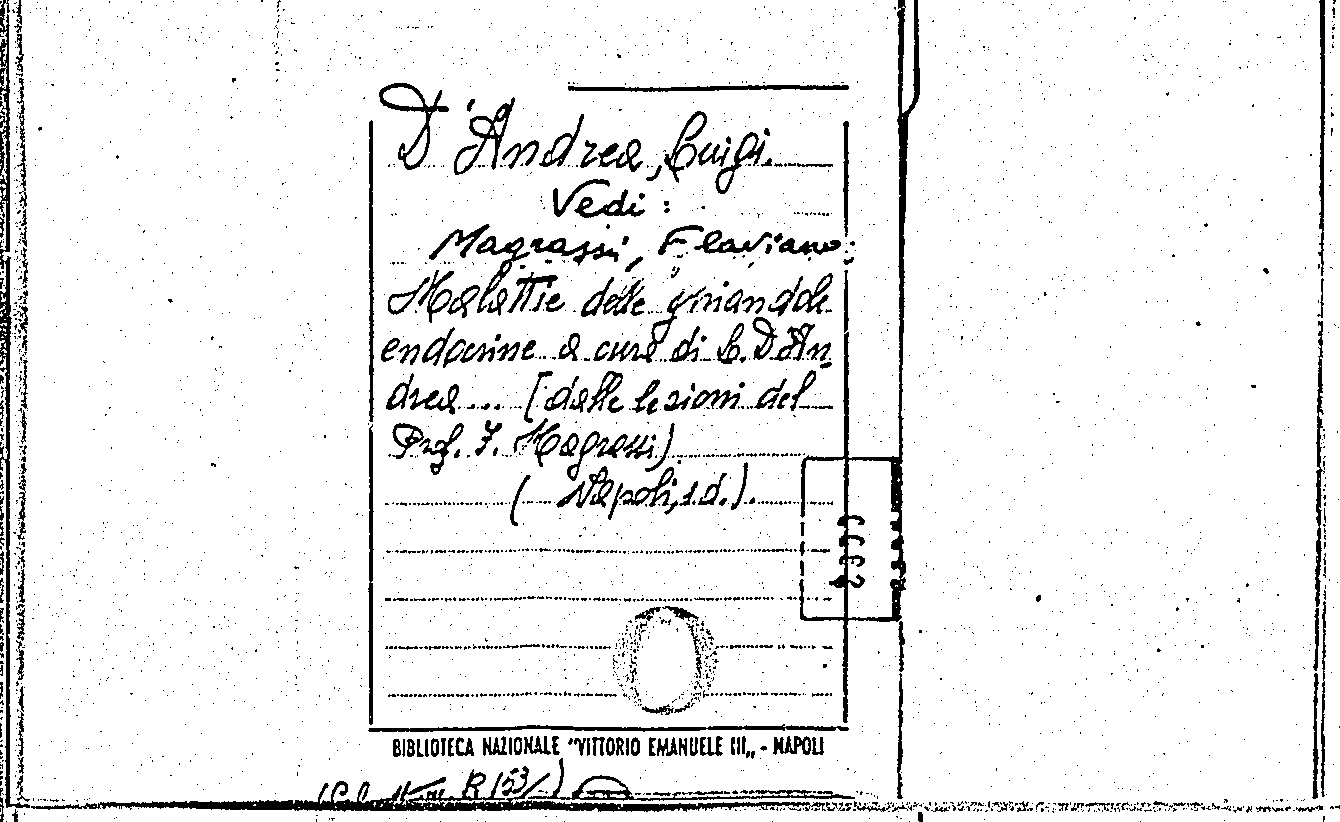 D'Andrea, Luigi.
Vedi :
Magrassi, Flaviano;
Malattie delle ghiandole
endocrine a cura di L. D'An
drea ... [dalle lezioni del
Prof. F. Magrassi)
( Napoli, s.d.).
BIBLIOTECA NAZIONALE "VITTORIO EMANUELE III„ - NAPOLI
R 153/)